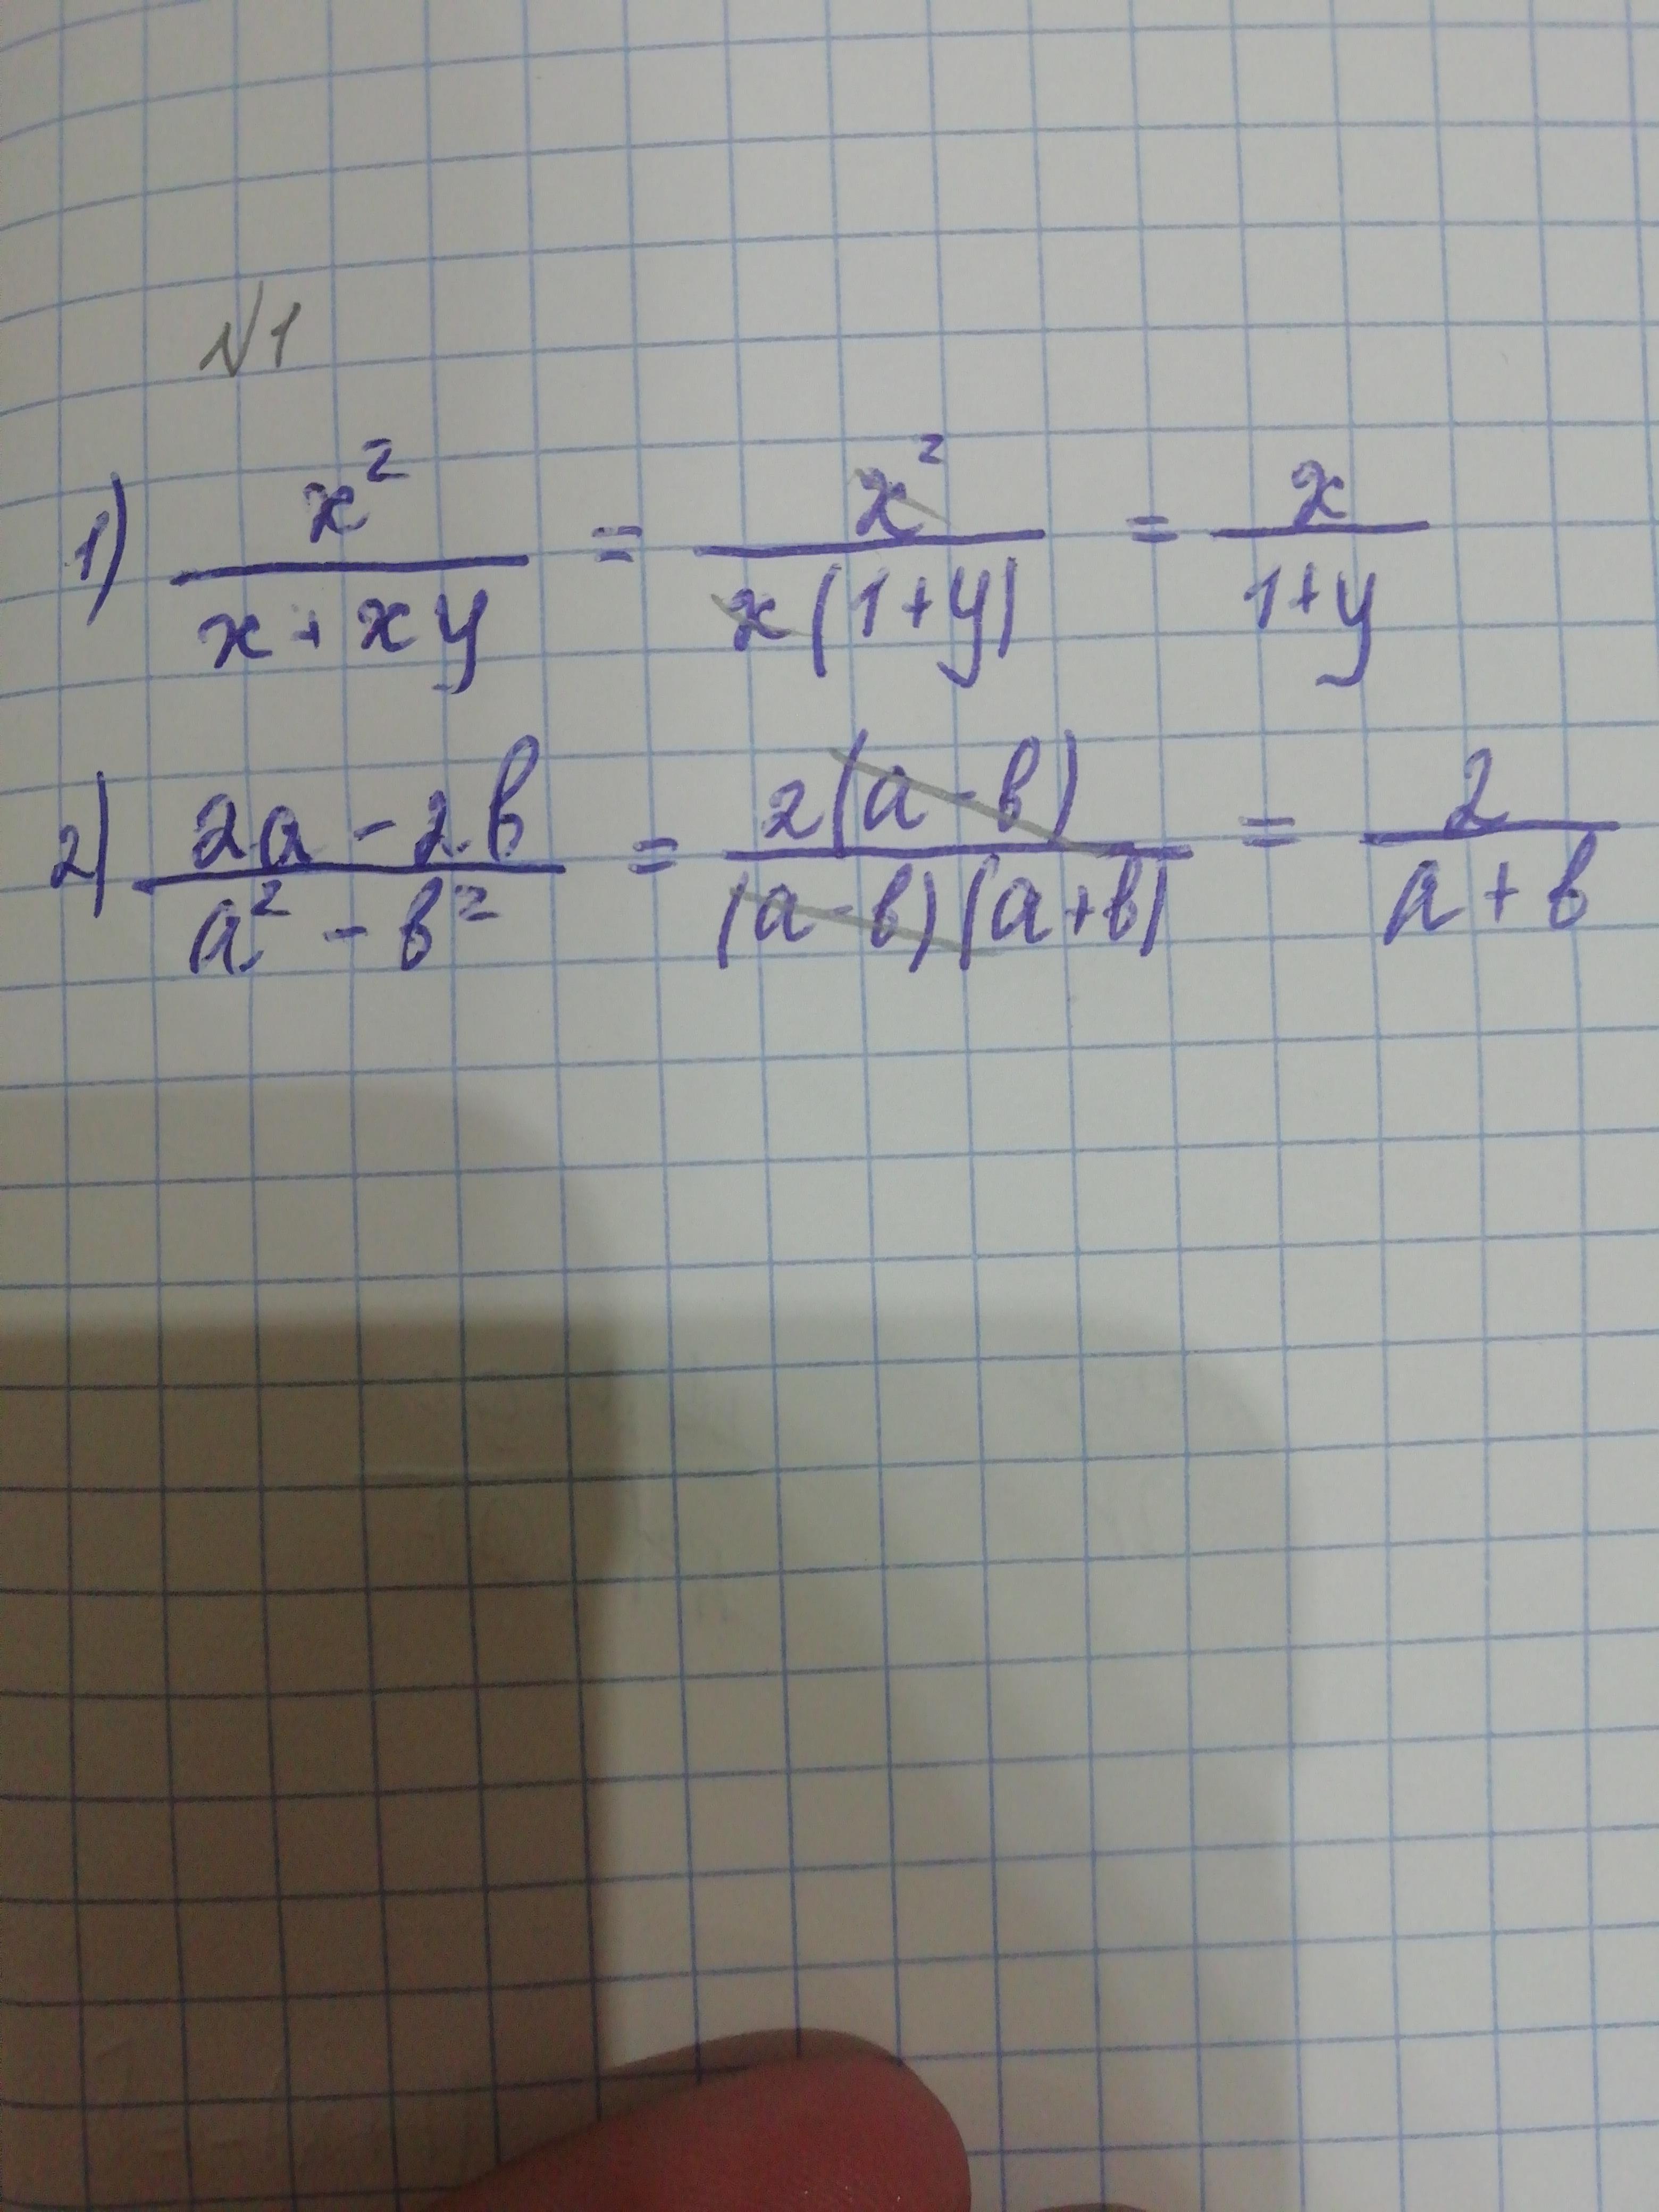 №1
1) x²/(x+xy) = x²/(x(1+y)) = x/(1+y)
2) (2a-2b)/(a²-b²) = 2(a-b)/((a-b)(a+b)) = 2/(a+b)